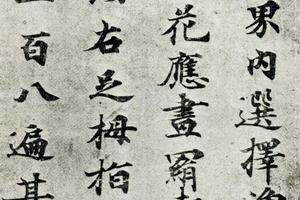 界内選擇
花應畫罥
右足拇指
百八遍其